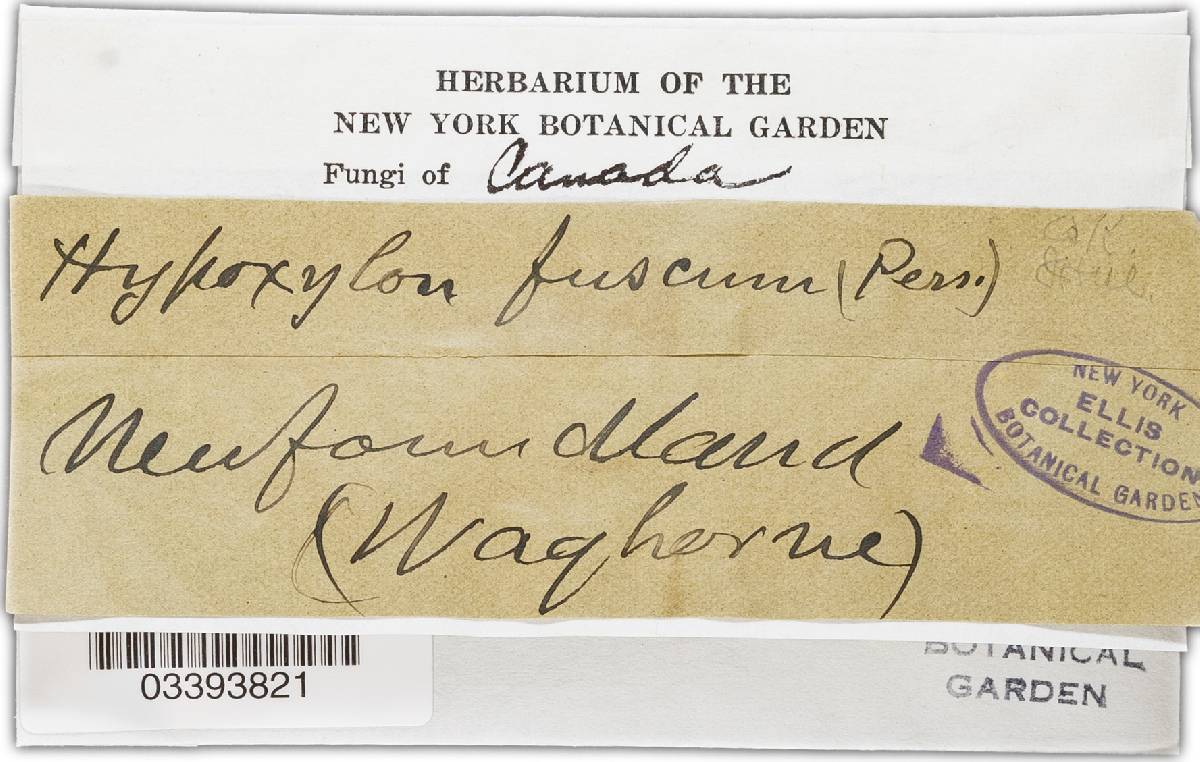 HERBARIUM OF THE
NEW YORK BOTANICAL GARDEN
Fungi of Canada
Hypoxylon fuscum (Pers.)
Newfoundland
(Waghorne)
NEW YORK
ELLIS
COLLECTION
BOTANICAL GARDEN
03393821
BOTANICAL
GARDEN